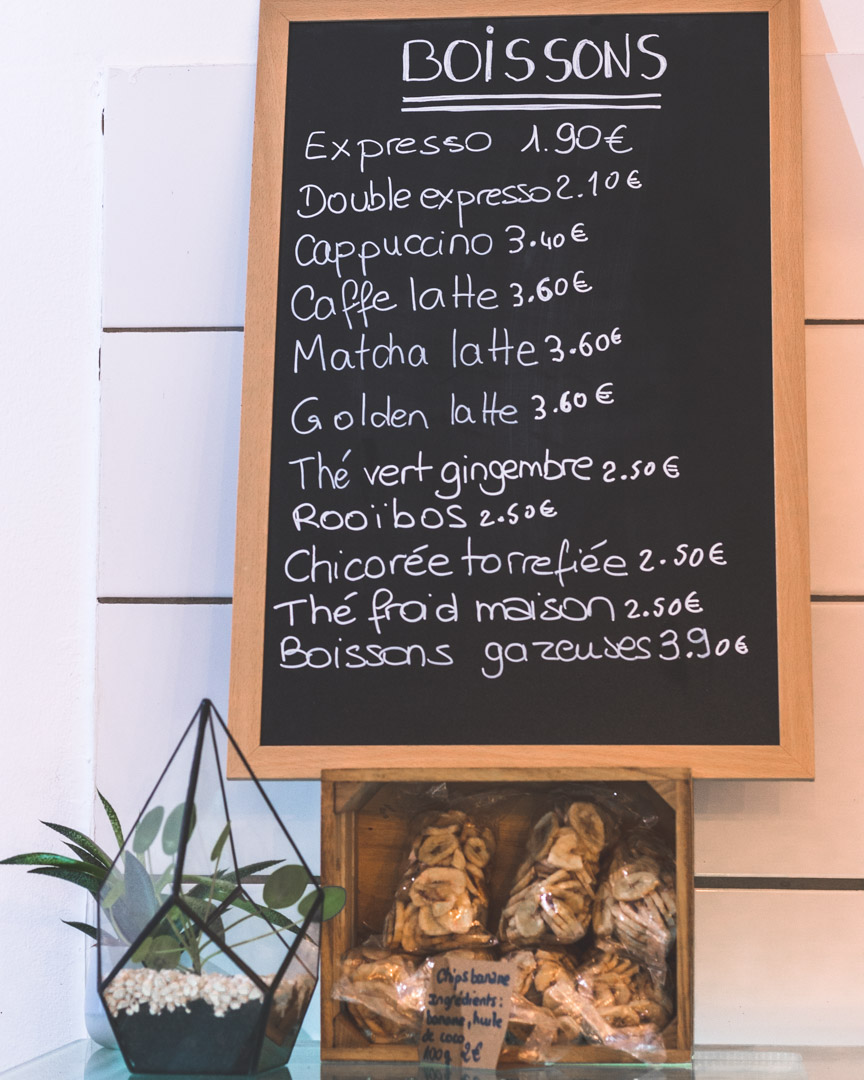 BOiSSONS
Expresso 1.90€
Double expresso 2.10€
Cappuccino 3.40€
Caffe latte 3.60€
Matcha latte 3.60€
Golden latte 3.60€
Thé vert gingembre 2.50€
Rooïbos 2.50€
Chicorée torrefiée 2.50€
Thé froid maison 2.50€
Boissons gazeuses 3.90€
Chips banane
Ingrédients:
banane, huile
de coco
100g 2€